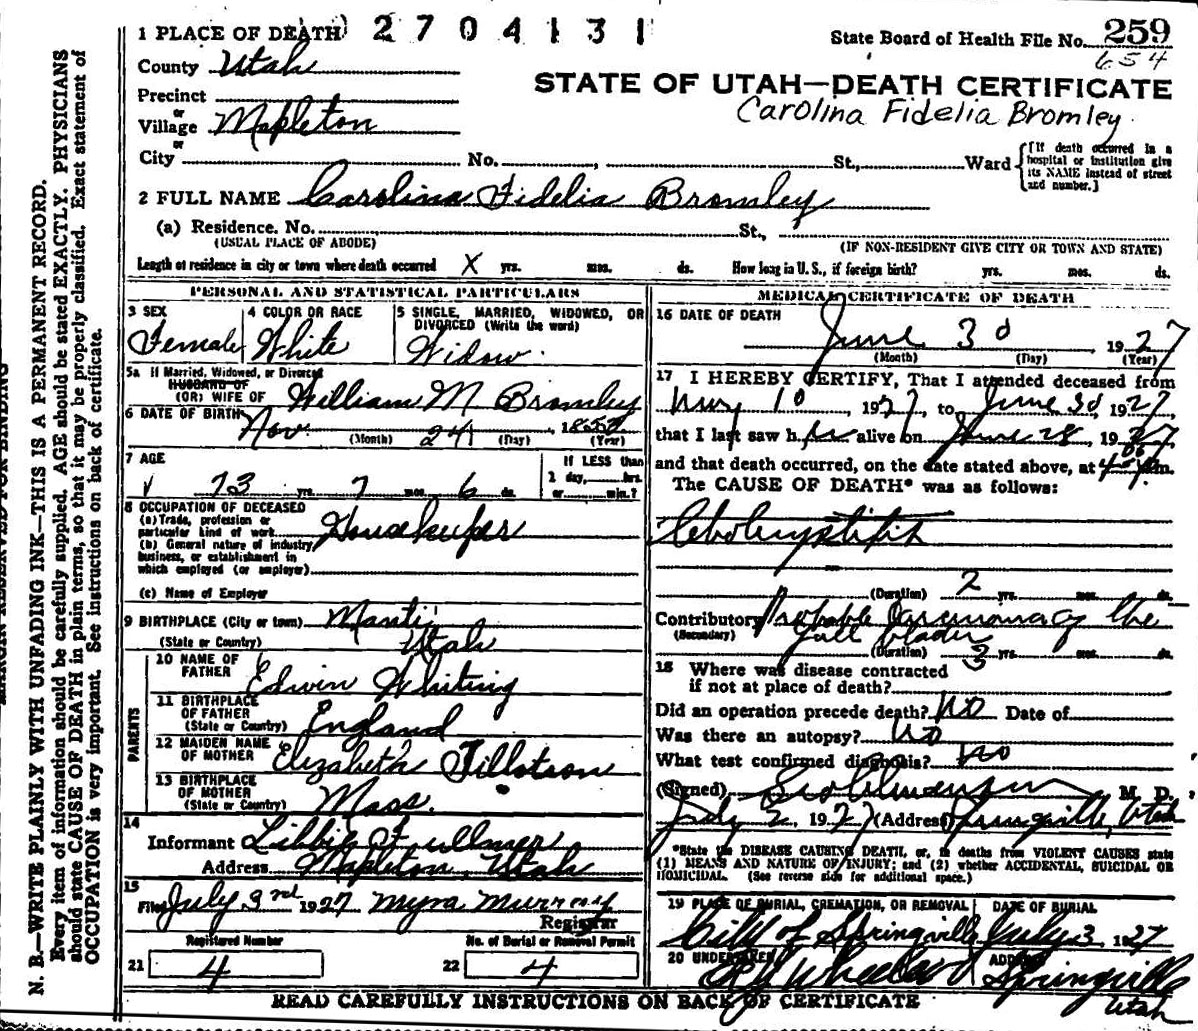 1 PLACE OF DEATH 2 7 0 4 1 3 1
State Board of Health File No. 259
654
County Utah
STATE OF UTAH—DEATH CERTIFICATE
Carolina Fidelia Bromley
Precinct
or
Village Mapleton
or
City No. , St., Ward
[If death occurred in a
hospital or institution give
its NAME instead of street
and number.]
2 FULL NAME Carolina Fidelia Bromley
(a) Residence. No. St.,
(USUAL PLACE OF ABODE) (IF NON-RESIDENT GIVE CITY OR TOWN AND STATE)
Length of residence in city or town where death occurred X yrs. mos. ds. How long in U. S., if foreign birth? yrs. mos. ds.
PERSONAL AND STATISTICAL PARTICULARS
3 SEX
Female
4 COLOR OR RACE
White
5 SINGLE, MARRIED, WIDOWED, OR
DIVORCED (Write the word)
Widow
5a If Married, Widowed, or Divorced
HUSBAND OF
(OR) WIFE OF William M Bromley
6 DATE OF BIRTH Nov 24, 1853
(Month) (Day) (Year)
7 AGE
73 yrs. 7 mos. 6 ds.
If LESS than
1 day, hrs.
or min.?
8 OCCUPATION OF DECEASED
(a) Trade, profession or
particular kind of work Housekeeper
(b) General nature of industry,
business, or establishment in
which employed (or employer)
(c) Name of Employer
9 BIRTHPLACE (City or town) Manti
(State or Country) Utah
PARENTS
10 NAME OF
FATHER Edwin Whiting
11 BIRTHPLACE
OF FATHER
(State or Country) England
12 MAIDEN NAME
OF MOTHER Elizabeth Tillotson
13 BIRTHPLACE
OF MOTHER
(State or Country) Mass.
14
Informant Libbie Fullmer
Address Mapleton, Utah
15
Filed July 3rd 1927 Myra Murray
Registrar
Registered Number
21 4
No. of Burial or Removal Permit
22 4
MEDICAL CERTIFICATE OF DEATH
16 DATE OF DEATH
June 30 1927
(Month) (Day) (Year)
17 I HEREBY CERTIFY, That I attended deceased from
May 10, 1927, to June 30 1927
that I last saw her alive on June 28 1927
and that death occurred, on the date stated above, at m.
The CAUSE OF DEATH* was as follows:
(Duration) 2 yrs. mos. ds.
Contributory Probable Carcinoma of the
(Secondary) gall blader
(Duration) 3 yrs. ds.
18 Where was disease contracted
if not at place of death?
Did an operation precede death? No Date of
Was there an autopsy? No
What test confirmed diagnosis? No
(Signed) M. D.
July 2, 1927 (Address) Springville, Utah
*State the DISEASE CAUSING DEATH, or, in deaths from VIOLENT CAUSES state
(1) MEANS AND NATURE OF INJURY; and (2) whether ACCIDENTAL, SUICIDAL OR
HOMICIDAL. (See reverse side for additional space.)
19 PLACE OF BURIAL, CREMATION, OR REMOVAL
City of Springville
DATE OF BURIAL
July 3 1927
20 UNDERTAKER
ADDRESS
Springville
Utah
READ CAREFULLY INSTRUCTIONS ON BACK OF CERTIFICATE
MARGIN RESERVED FOR BINDING
N. B.—WRITE PLAINLY WITH UNFADING INK—THIS IS A PERMANENT RECORD.
Every item of information should be carefully supplied. AGE should be stated EXACTLY. PHYSICIANS
should state CAUSE OF DEATH in plain terms, so that it may be properly classified. Exact statement of
OCCUPATION is very important. See instructions on back of certificate.